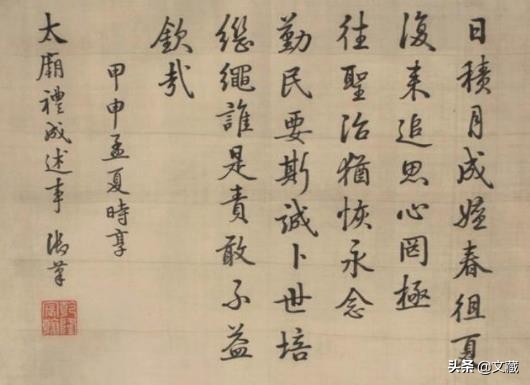 日積月成嬗春徂夏
復來追思心罔極
往聖治猶恢永念
勤民要斯誠卜世培
繼繩誰是責敢不益
欽哉
甲申孟夏時享
太廟禮成述事 御筆
头条 @文藏